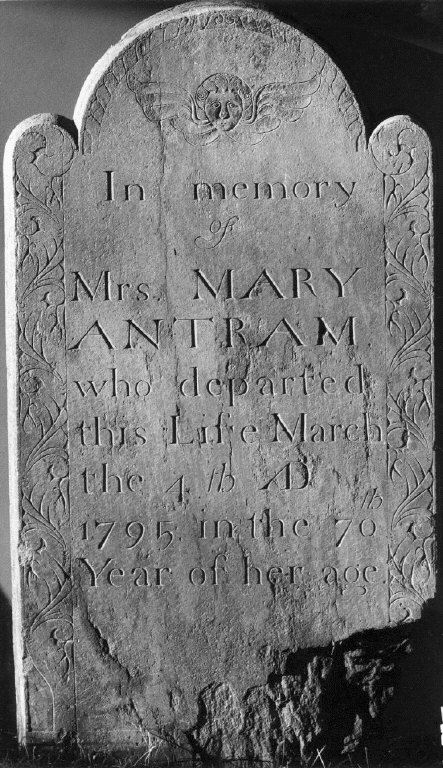 In memory
of
Mrs. MARY
ANTRAM
who departed
this Life March
the 4th AD
1795, in the 70th
Year of her age.